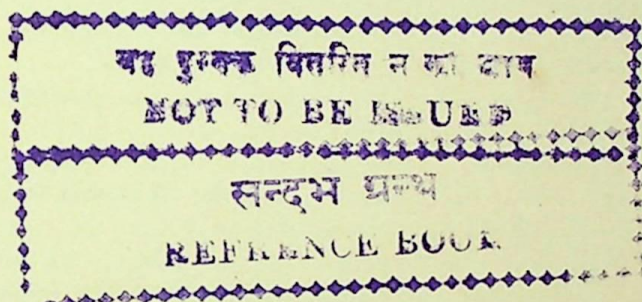 यह पुस्तक वितरित न की जाय
NOT TO BE ISSUED
सन्दर्भ ग्रन्थ
REFRENCE BOOK